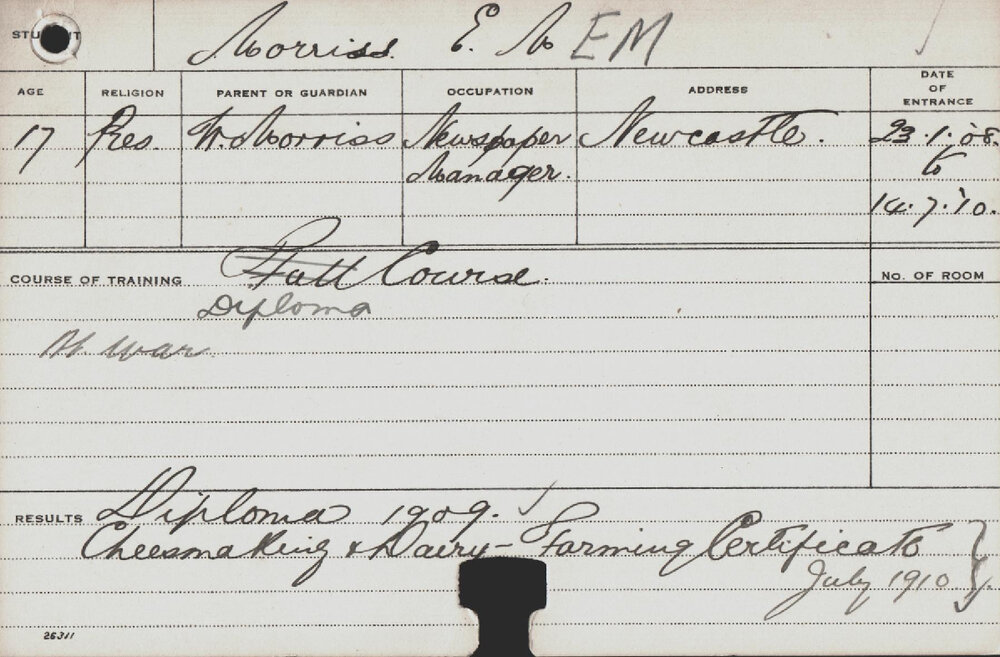 STUDENT Morriss. E. M EM
AGE RELIGION PARENT OR GUARDIAN OCCUPATION ADDRESS DATE OF ENTRANCE
17 Pres. W. Morriss Newspaper Newcastle. 23.1.08.
Manager. to
14.7.10.
COURSE OF TRAINING Full Course. No. OF ROOM
Diploma
At war
RESULTS Diploma 1909. ✓
Cheesmaking & Dairy-Farming Certificate
July 1910
26311